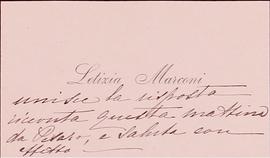 Letizia Marconi
unisce la risposta
ricevuta questa mattina
da Pesaro, e saluta con
affetto